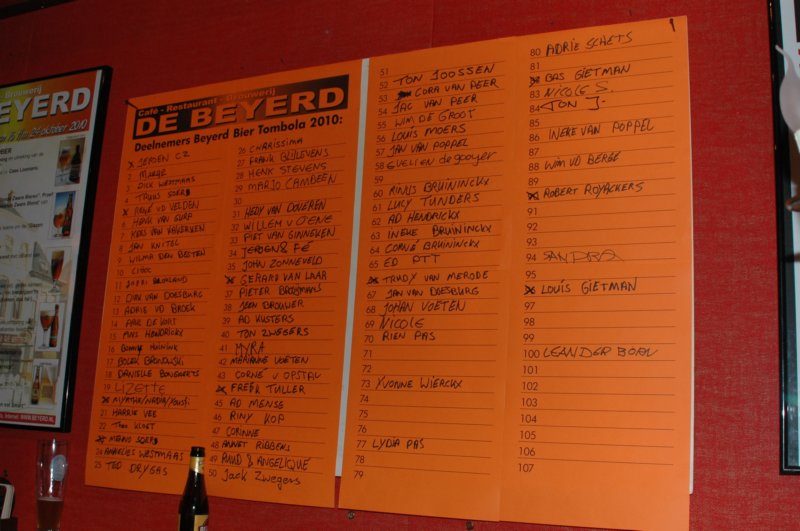 Brouwerij
BEYERD
25 oktober 2010
Internet: WWW.BEYERD.NL
Café - Restaurant - Brouwerij
DE BEYERD
Deelnemers Beyerd Bier Tombola 2010:
1 JEROEN CZ
2
3 DICK WESTMAAS
4 TRUUS
5 RENÉ VD VELDEN
6 HENK VAN
7 KEES VAN
8 JAN KNITEL
9 WILMA DEN BESTEN
10
11
12 DIRK VAN DOESBURG
13 ADRIE VD BROEK
14 DE KORT
15 HENDRICKX
16
17
18 DANIELLE BONGAERTS
19 LIZETTE
20 MYRTHE/NADIA/
21 HARRIE VEE
22 THEO KLOET
23 MENNO
24 ANNELIES WESTMAAS
25 TED DRYGAS
26 CHARISSIMA
27 FRANK
28 HENK STEVENS
29 MARJO CAMBEEN
30
31 HEDY VAN DOVEREN
32 WILLEM V OENE
33 PIET VAN GINNEKEN
34 JEROEN & FÉ
35 JOHN ZONNEVELD
36 GERARD VAN LAAR
37 PIETER
38 BROUWER
39 AD KUSTERS
40 TON ZWEGERS
41 MYRA
42 MERIANNE VOETEN
43 CORNÉ V OPSTAL
44 FREEK TULLER
45 AD MENSE
46 RINY KOP
47 CORINNE
48 ANNET RIBBENS
49 RUUD & ANGELIQUE
50 Jack Zwegers
51
52 TON JOOSSEN
53 CORA VAN PEER
54 JAC VAN PEER
55 WIM DE GROOT
56 LOUIS MOERS
57 JAN VAN POPPEL
58 EVELIEN de gooyer
59
60 RINUS BRUININCKX
61 LUCY TUNDERS
62 AD HENDRICKX
63 INEKE BRUININCKX
64 CORNÉ BRUININCKX
65 ED OTT
66
67 TRUDY VAN MERODE
67 JAN VAN DOESBURG
68 JOHAN VOETEN
69 NICOLE
70 RIEN PAS
71
72
73 YVONNE WIERCKX
74
75
76
77 LYDIA PAS
78
79
80 ADRIE SCHETS
81
82 BAS GIETMAN
83 NICOLE S.
84 TON J.
85
86 INEKE VAN POPPEL
87
88 WIM VD BERGE
89
90 ROBERT ROYACKERS
91
92
93
94 SANDRA
95
96 LOUIS GIETMAN
97
98
99
100 LEANDER
101
102
103
104
105
106
107